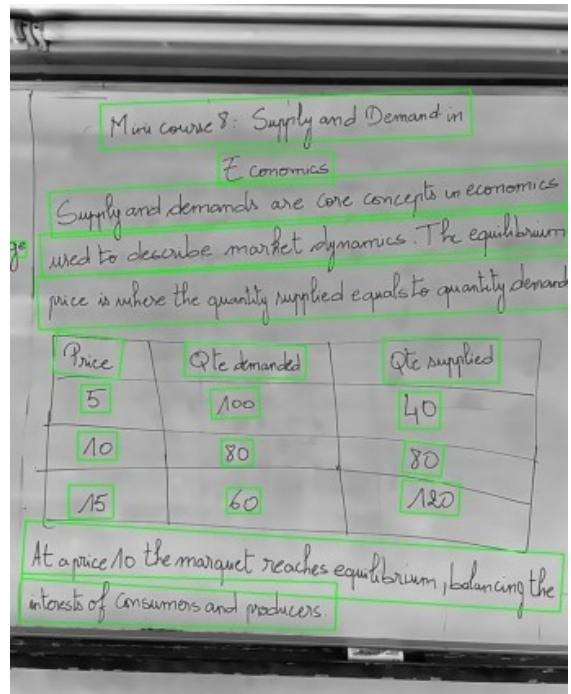 Mini course 8: Supply and Demand in
Economics
Supply and demands are core concepts in economics
used to describe market dynamics. The equilibrium
price is where the quantity supplied equals to quantity demand
Price Qte demanded Qte supplied
5 100 40
10 80 80
15 60 120
At a price 10 the marquet reaches equilibrium, balancing the
interests of consumers and producers.